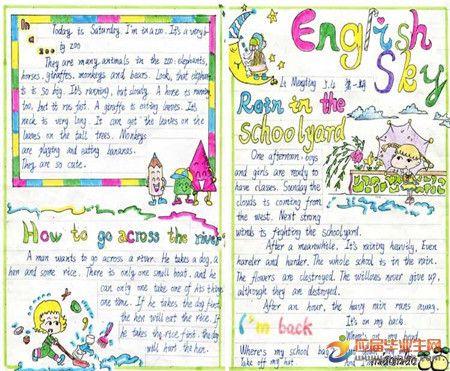 In a zoo
Today is Saturday. I'm in a zoo. It's a very
big zoo
They are many animals in the zoo: elephants,
horses, giraffes, monkeys and bears. Look, that elephant
is so big. It's running, but slowly. A horse is running
too, but it runs fast. A giraffe is eating leaves. It's
neck is very long. It can get the leaves on the
leaves on the tall trees. Monkeys
are playing and eating bananas.
They are so cute.
How to go across the river
A man wants to go across a river. He takes a dog, a
hen and some rice. There is only one small boat. and he
can only one take one of his things
one time. If he takes the dog first,
the hen will eat the rice. If
he takes the rice first, the dog
will hurt the hen.
English
Sky
Rain in the
schoolyard
One afternoon, boys
and girls are ready to
have classes. Sunday the
clouds is coming from
the west. Next strong
winds is fighting the schoolyard.
After a meanwhile. It's raining heavily, Even
harder and harder. The whole school is in the rain.
The flowers are clestroyed. The willows never give up,
although they are destroyed.
After an hour, the heavy rain runs away.
I'm back
It's on my back.
Where's my school bag
Take off my hat
应届毕业生网